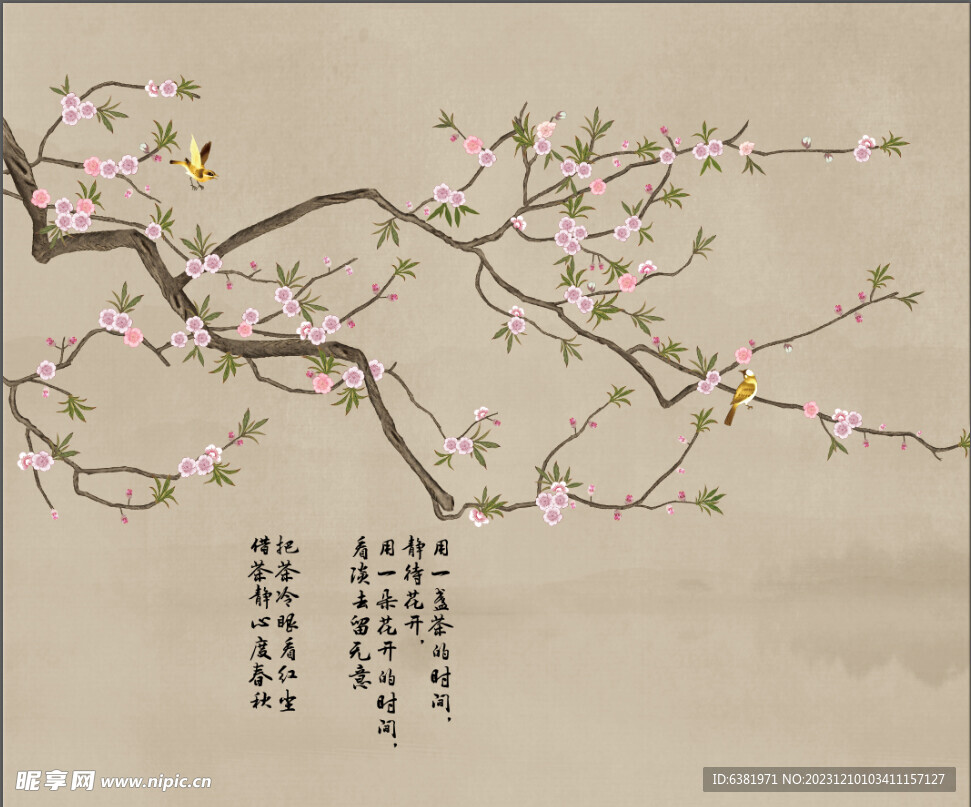 用一盏茶的时间，
静待花开，
用一朵花开的时间，
看淡去留无意
把茶冷眼看红尘
借茶静心度春秋
昵享网 www.nipic.cn
ID:6381971 NO:20231210103411157127